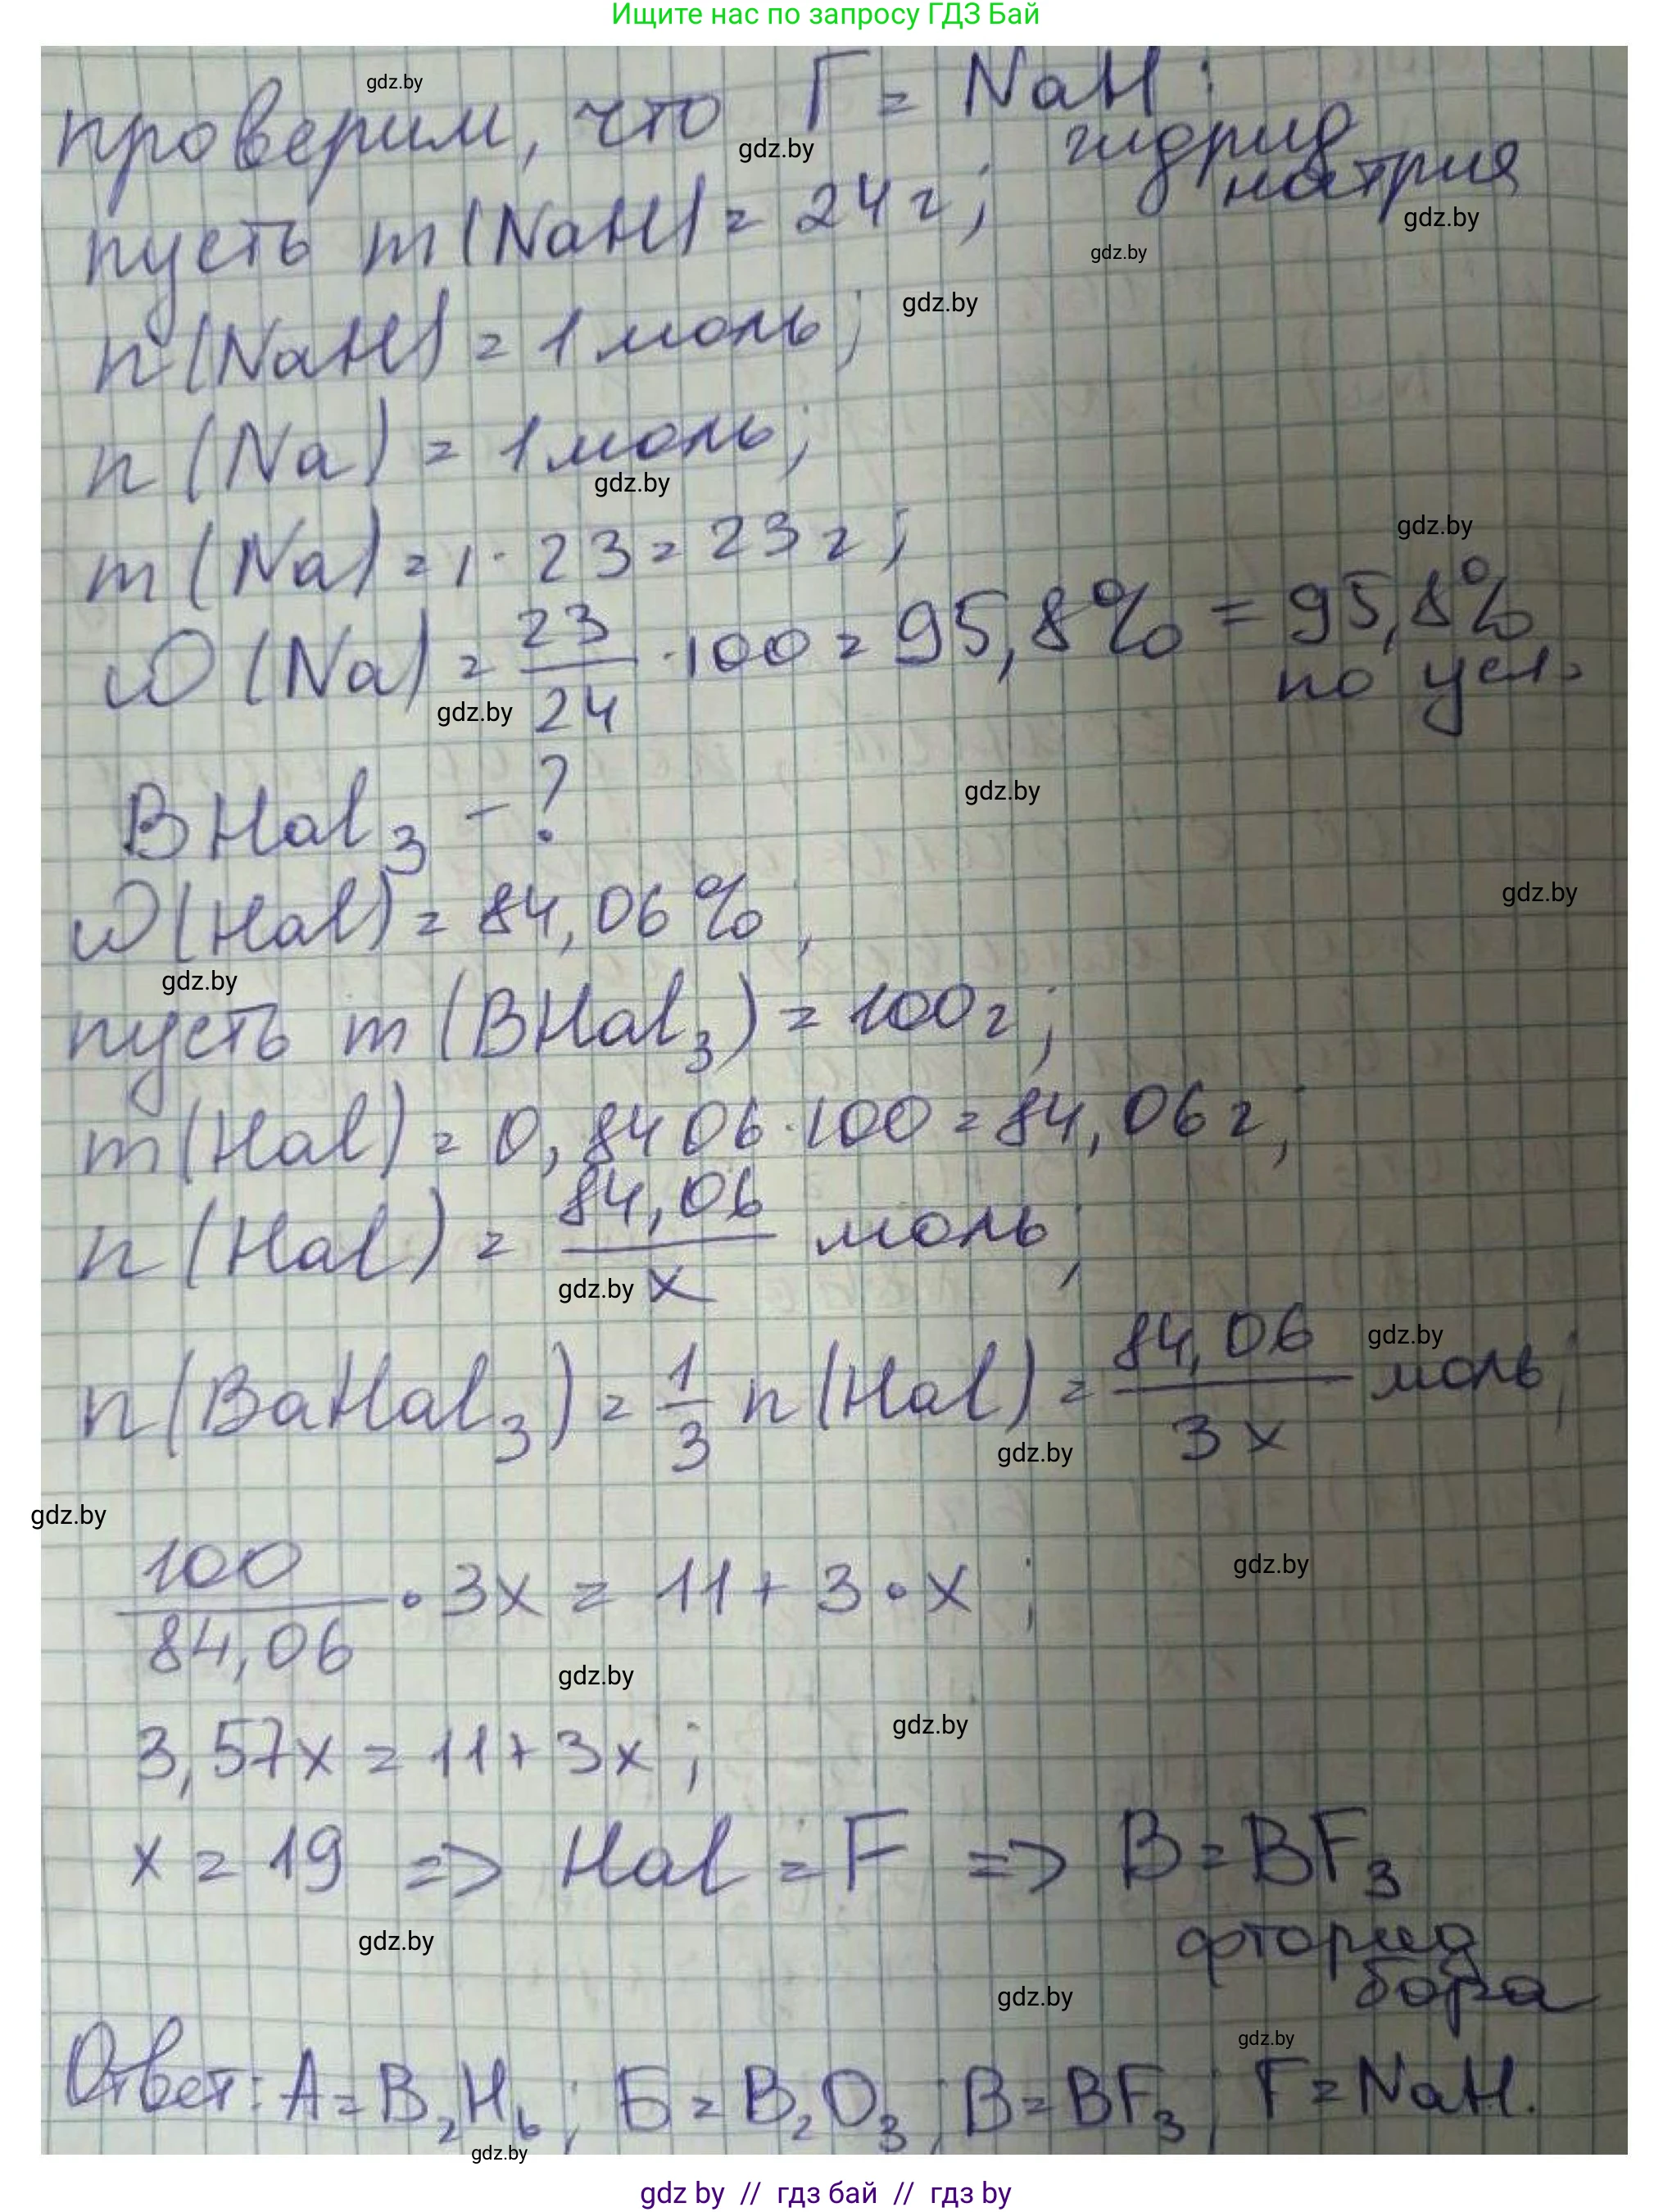 Ищите нас по запросу ГДЗ Бай
gdz.by
проверим, что Г = NaH :
gdz.by
гидрид
натрия
gdz.by
пусть m(NaH) = 24 г;
gdz.by
gdz.by
n(NaH) = 1 моль;
n(Na) = 1 моль;
gdz.by
gdz.by
m(Na) = 1 · 23 = 23 г;
ω(Na) = 23/24 · 100 = 95,8% = 95,8%
по усл.
gdz.by
BHal₃ - ?
gdz.by
gdz.by
ω(Hal) = 84,06%;
gdz.by
пусть m(BHal₃) = 100 г;
m(Hal) = 0,8406 · 100 = 84,06 г;
n(Hal) = 84,06/x моль;
gdz.by
gdz.by
n(BaHal₃) = 1/3 n(Hal) = 84,06/3x моль;
gdz.by
gdz.by
gdz.by
100/84,06 · 3x = 11 + 3 · x ;
gdz.by
gdz.by
3,57x = 11 + 3x ;
x = 19 => Hal = F => B = BF₃
фторид
бора
gdz.by
gdz.by
gdz.by
Ответ: А = B₂H₆; Б = B₂O₃; В = BF₃; Г = NaH.
gdz.by
gdz by // гдз бай // гдз by